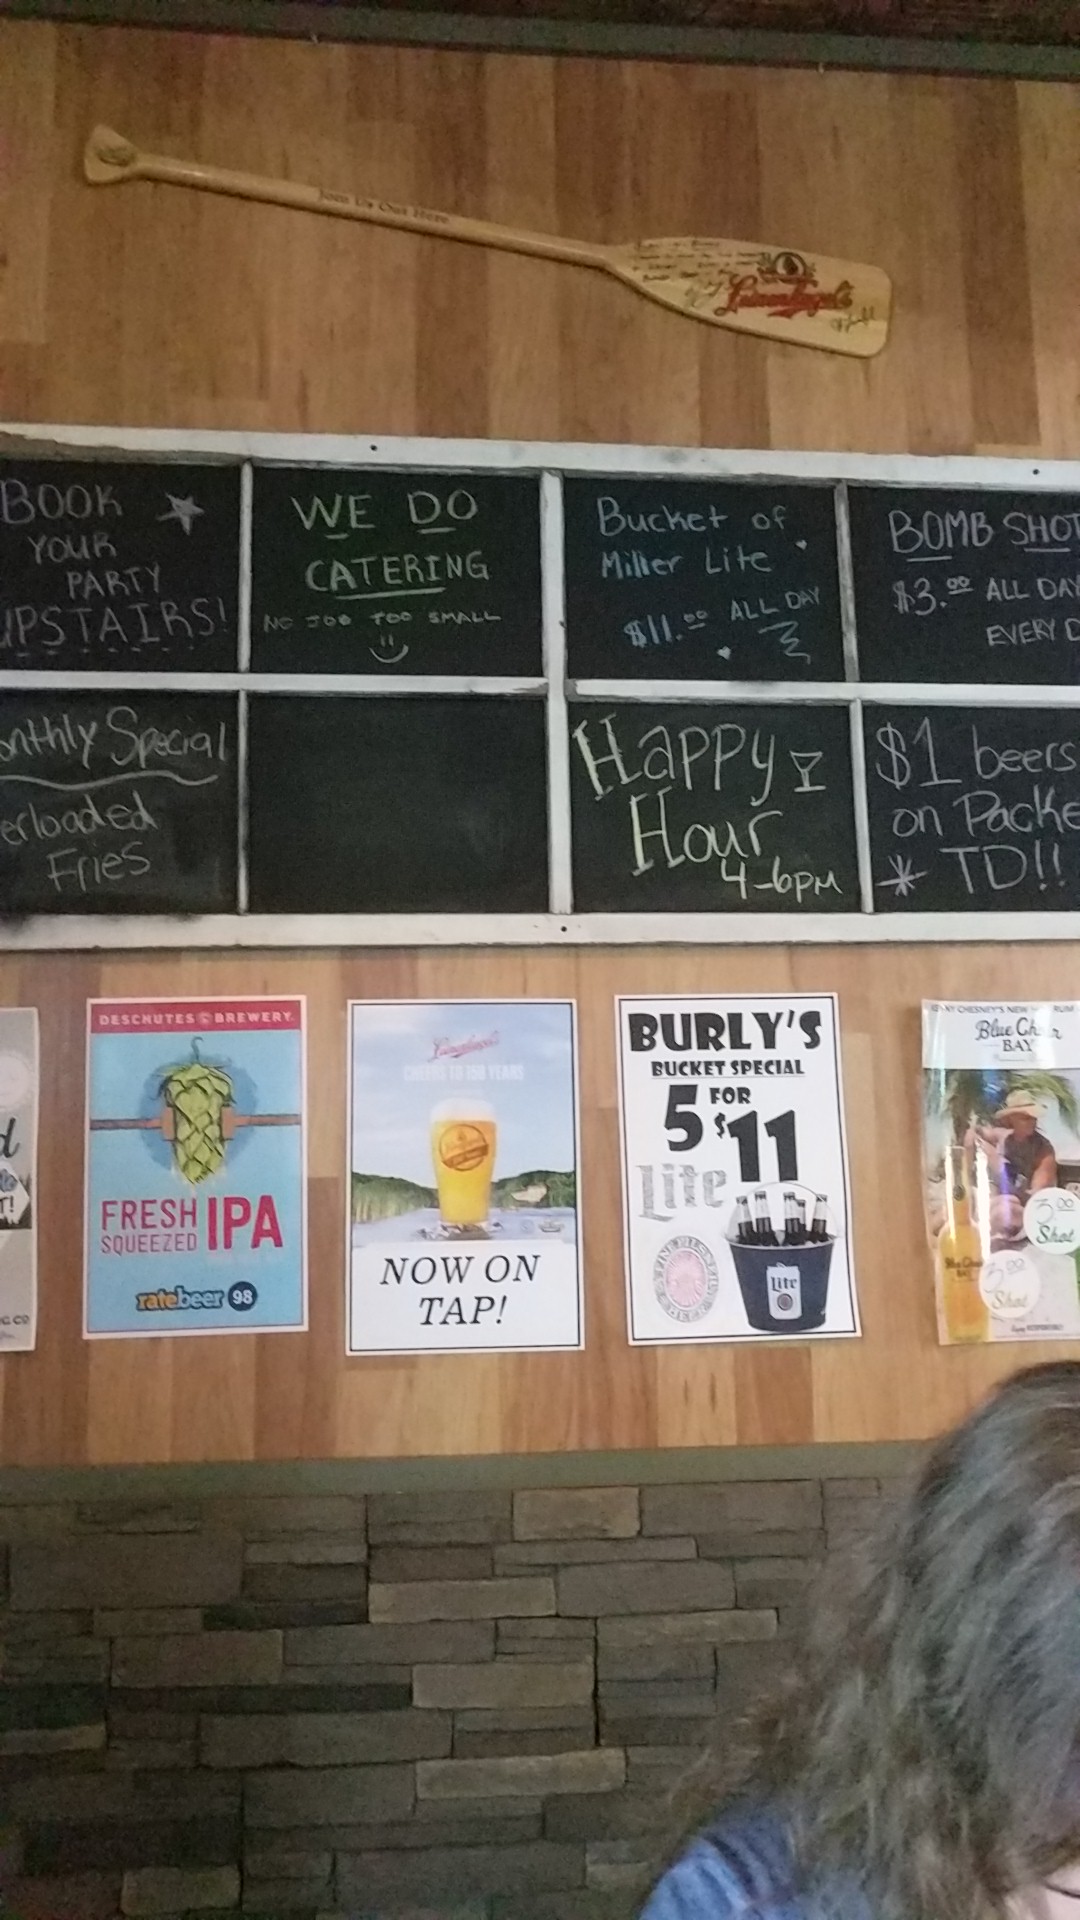 Join Us Out Here
Leinenkugel's
BOOK
YOUR
PARTY
UPSTAIRS!
WE DO
CATERING
NO JOB TOO SMALL
Bucket of
Miller Lite
$11.00 ALL DAY
BOMB SHOT
$3.00 ALL DAY
EVERY D
onthly Special
erloaded
Fries
Happy
Hour
4-6pm
$1 beers
on Packe
* TD!!
DESCHUTES BREWERY.
FRESH
SQUEEZED
IPA
ratebeer 98
Leinenkugel's
CHEERS TO 150 YEARS
NOW ON
TAP!
BURLY'S
BUCKET SPECIAL
5 FOR
$11
Lite
A FINE PILSNER
BEER
Lite
NY CHESNEY'S NEW RUM
Blue Chair
BAY
3.00
Shot
3.00
Shot